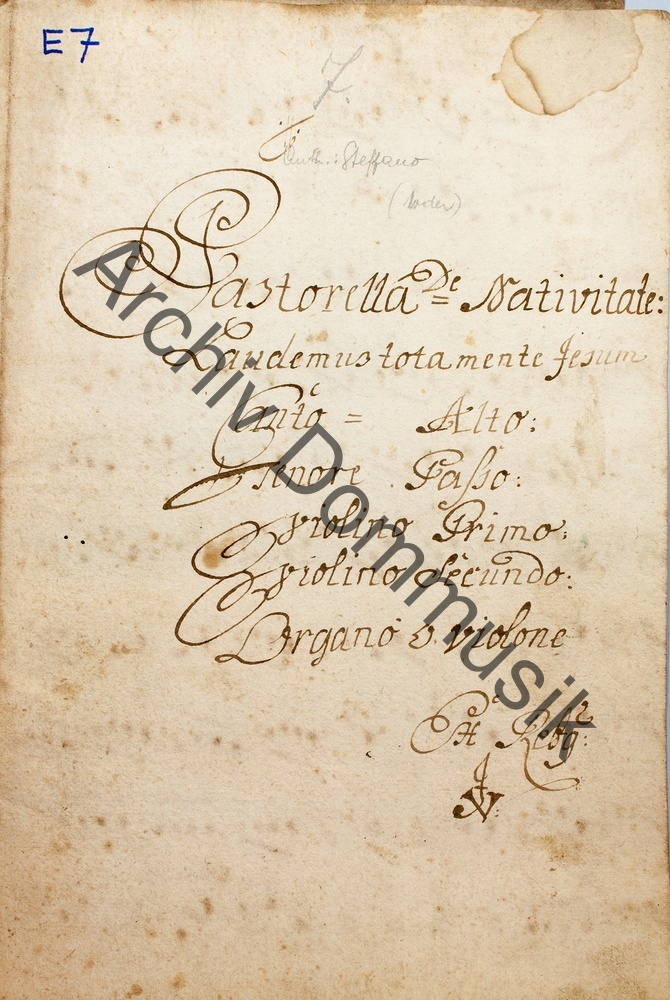 E7
7.
Auth.: Steffano
Pastorella De Nativitate:
Laudemus tota mente Jesum
Canto = Alto:
Tenore Passo:
Violino Primo:
Violino Secundo:
Organo o violone
Archiv Dommusik